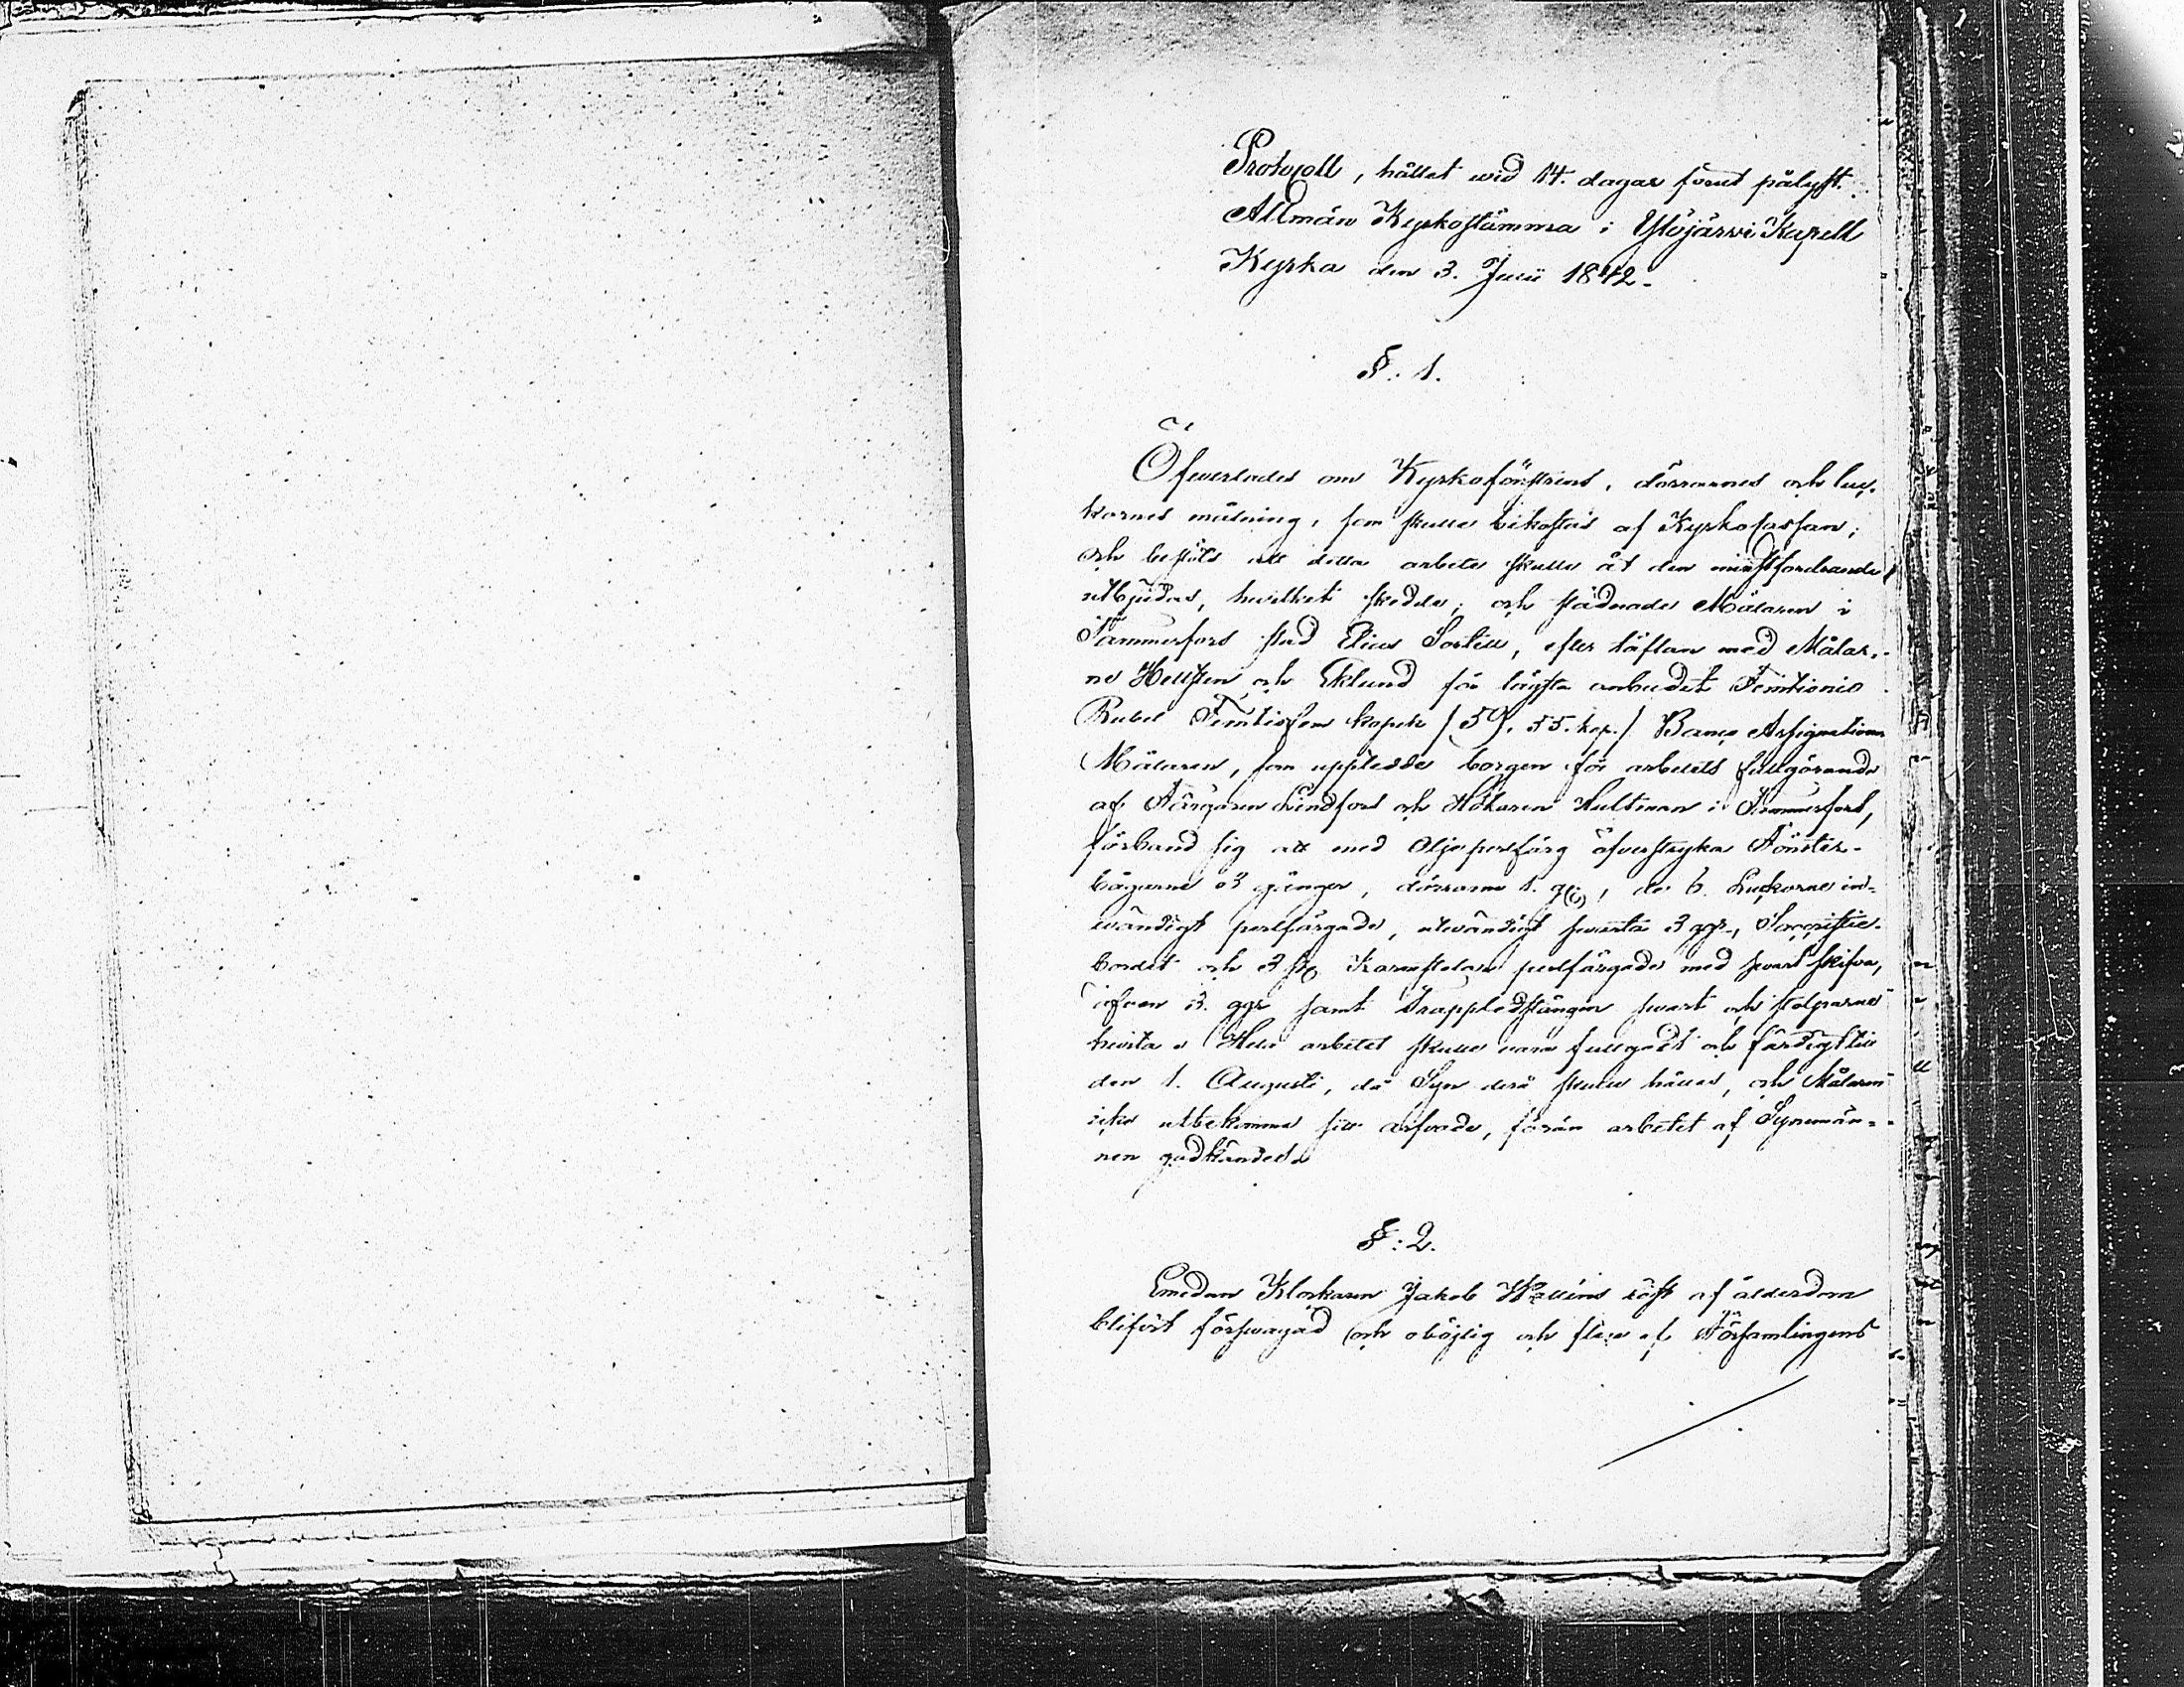 Protocoll, hållet wid 14. dagar förut pålyst.
Allmän Kyrkostämma i Ylöjärvi Kapell
Kyrka den 3. Julii 1842.
§. 1.
Öfwerlades om Kyrkofönstrens, dörrarnes och luc-
kornes målning, som skulle bekostas af Kyrkocassan;
och beslöts att detta arbete skulle åt den minstfordrande
utbjudas, hwilket skedde; och stadnade Målaren i
Tammerfors stad Elias Sortell, efter täflan med Målar-
ne Hellsten och Eklund för lägsta anbudet Femtionio
Rubel Femtiofem kopek / 59. 55. kop. / Banco Assignationer
Målaren, som uppledde borgen för arbetets fullgörande
af Färgaren Lindfors och Hökaren Hultman i Tammerfors,
förband sig att med Oljeperlfärg öfwerstryka Fönster-
bågarne 3 gånger, dörrarne 1. g, de 6. Luckorne in-
wändigt perlfärgade, utwändigt swarta 3 ggr, Sacristie-
bordet och 3 st perlfärgade med swart skifwa,
äfwen 3. ggr samt Trappledstången swart och stolparne
hwita. Hela arbetet skulle vara fullgodt och färdigt till
den 1. Augusti, då Syn derå skulle hållas, och Målaren
icke utbekomma sin arfvode, förän arbetet af Synemän-
nen godkändes.
§: 2.
Emedan Klockaren Jakob Wallens röst af ålderdom
blifvit förswagad och oböjlig och flere af Församlingens